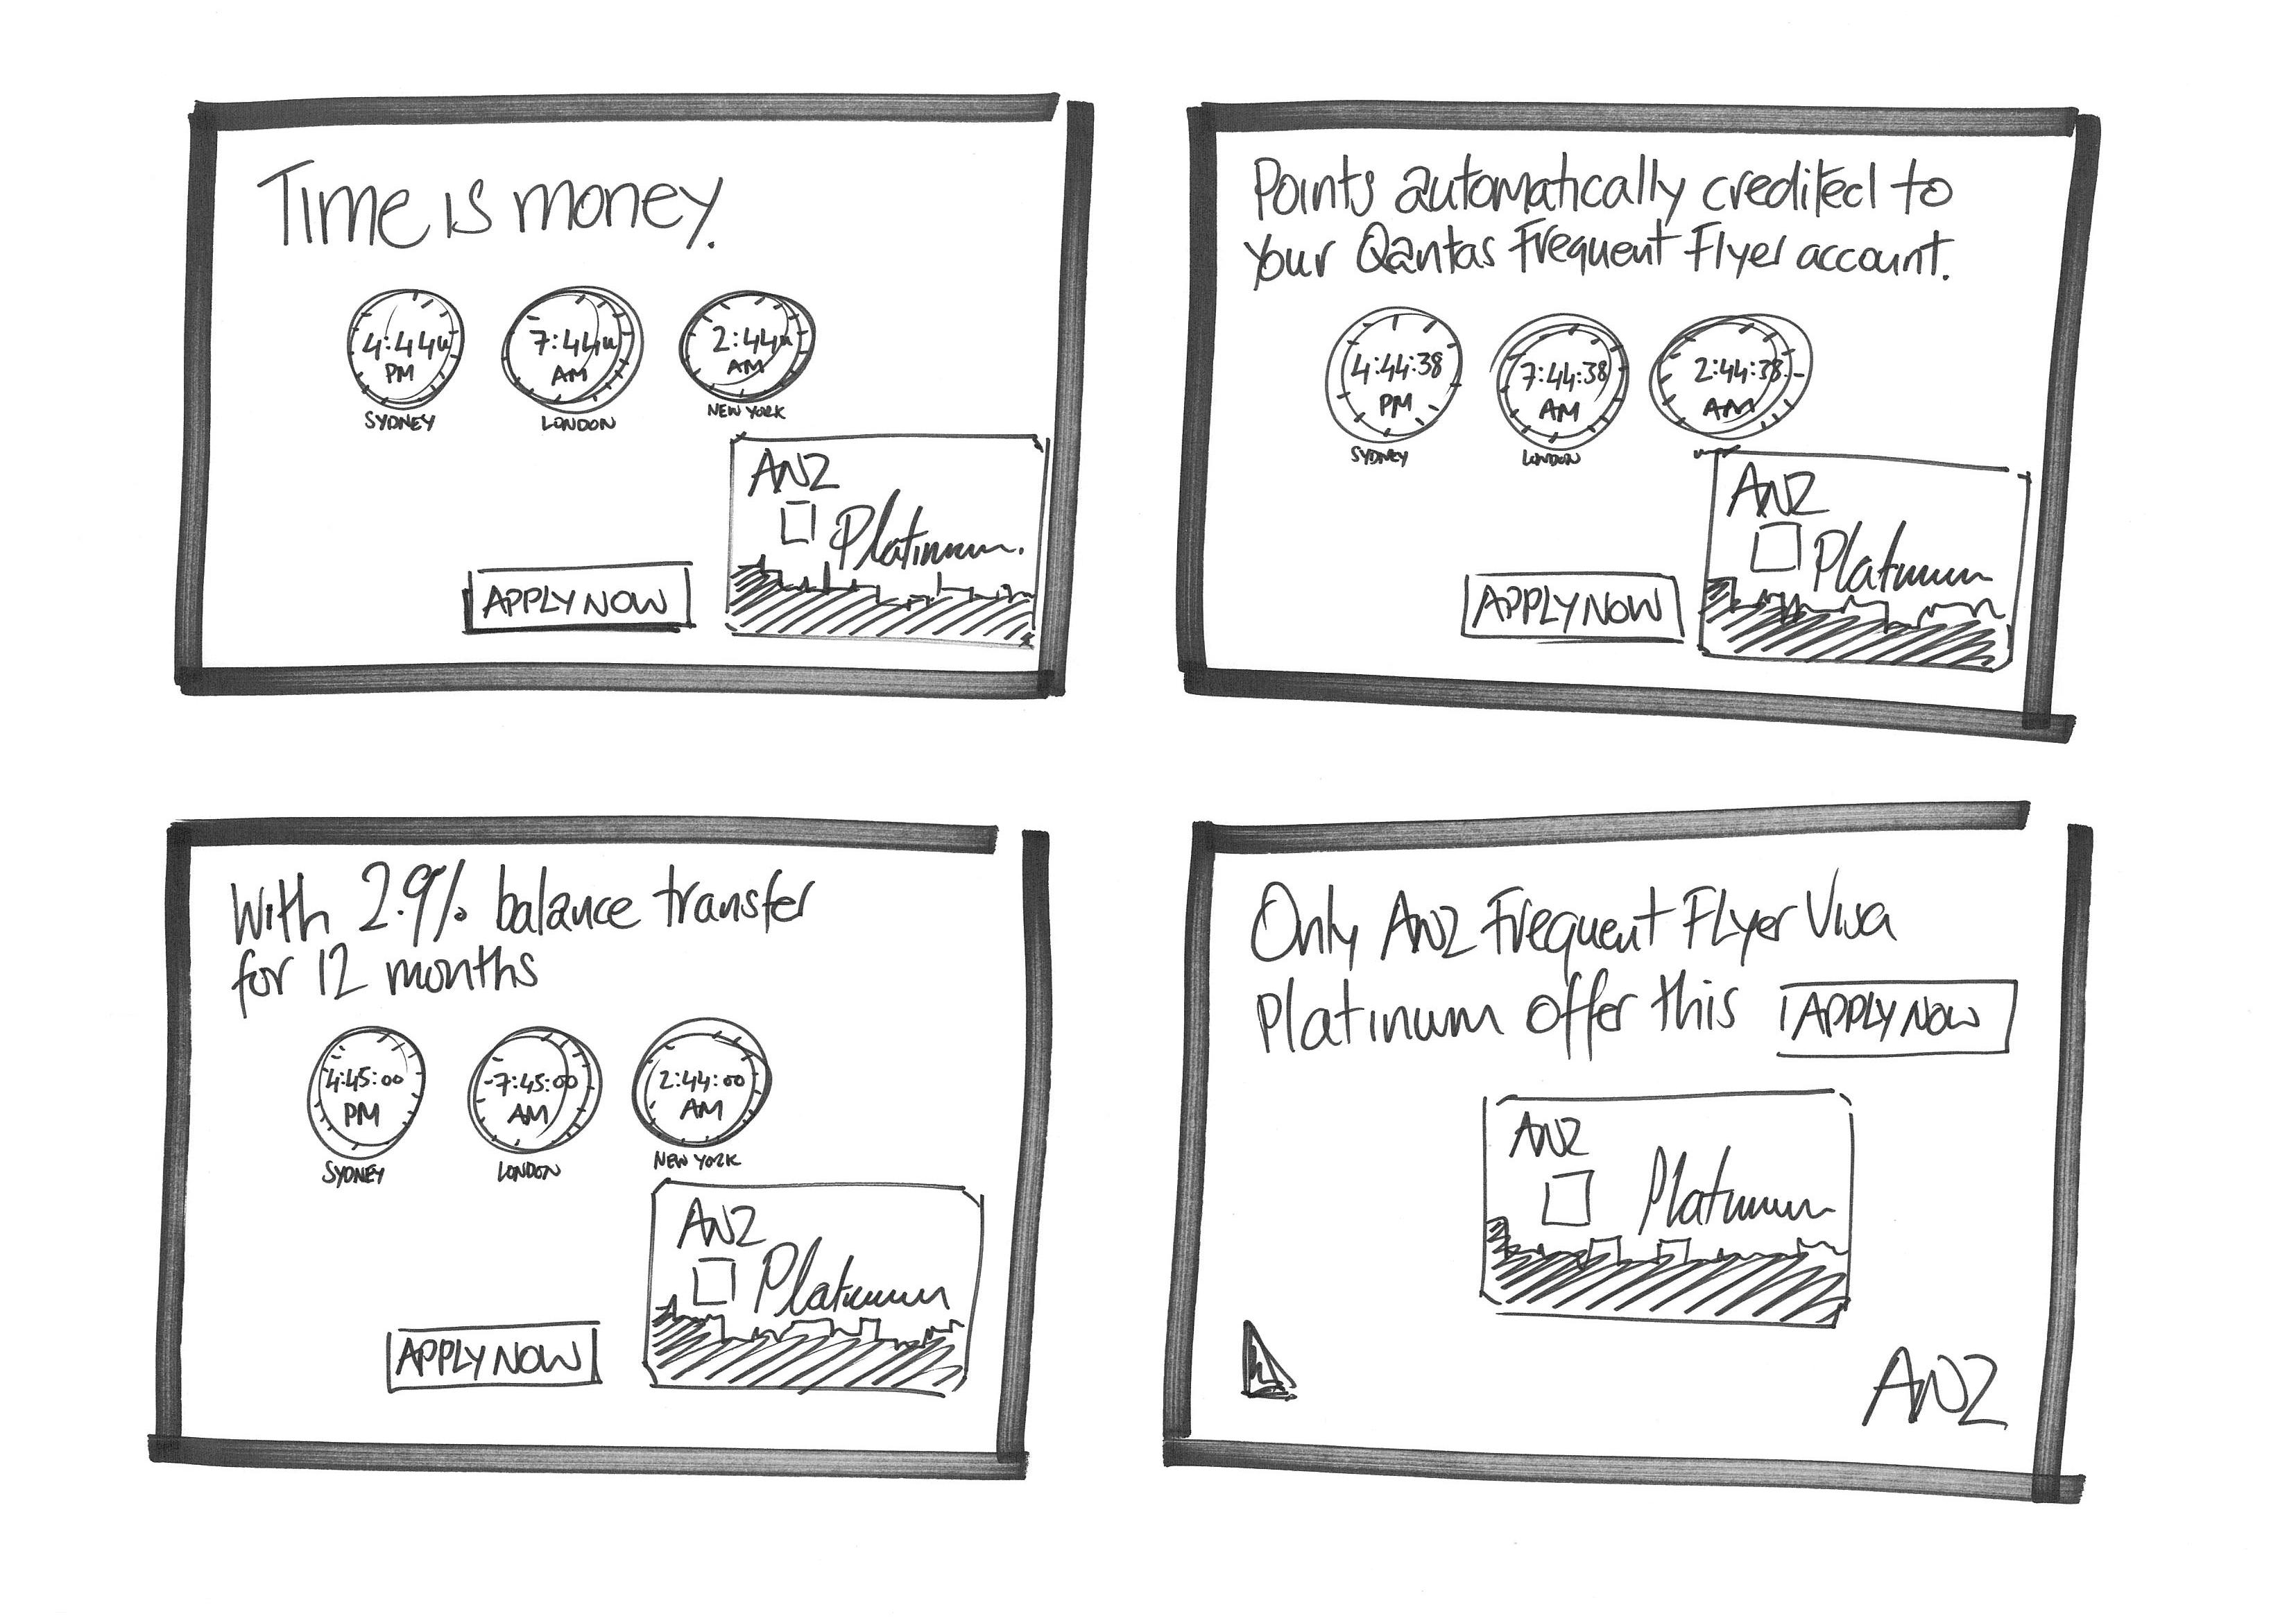 Time is money.
4:44
PM
SYDNEY
7:44
AM
LONDON
2:44
AM
NEW YORK
ANZ
Platinum.
APPLY NOW
Points automatically credited to
your Qantas Frequent Flyer account.
4:44:38
PM
SYDNEY
7:44:38
AM
LONDON
2:44:38
AM
ANZ
Platinum
APPLY NOW
With 2.9% balance transfer
for 12 months
4:45:00
PM
SYDNEY
7:45:00
AM
LONDON
2:44:00
AM
NEW YORK
ANZ
Platinum
APPLY NOW
Only ANZ Frequent Flyer Visa
Platinum offer this
APPLY NOW
ANZ
Platinum
ANZ